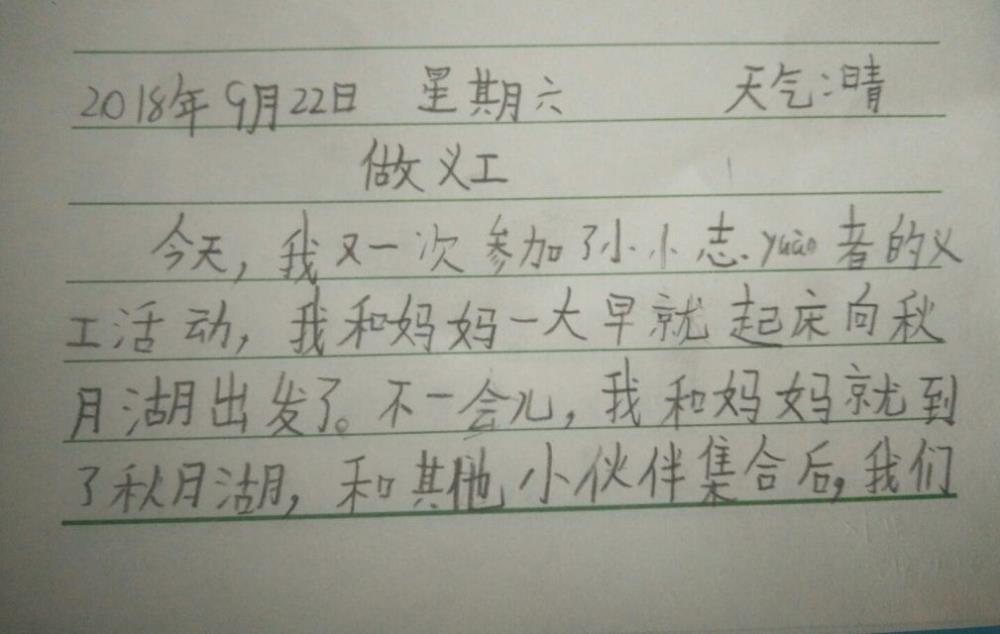 2018年9月22日 星期六 天气:晴
做义工
今天,我又一次参加了小小志yuàn者的义
工活动,我和妈妈一大早就起床向秋
月湖出发了。不一会儿,我和妈妈就到
了秋月湖,和其他小伙伴集合后,我们